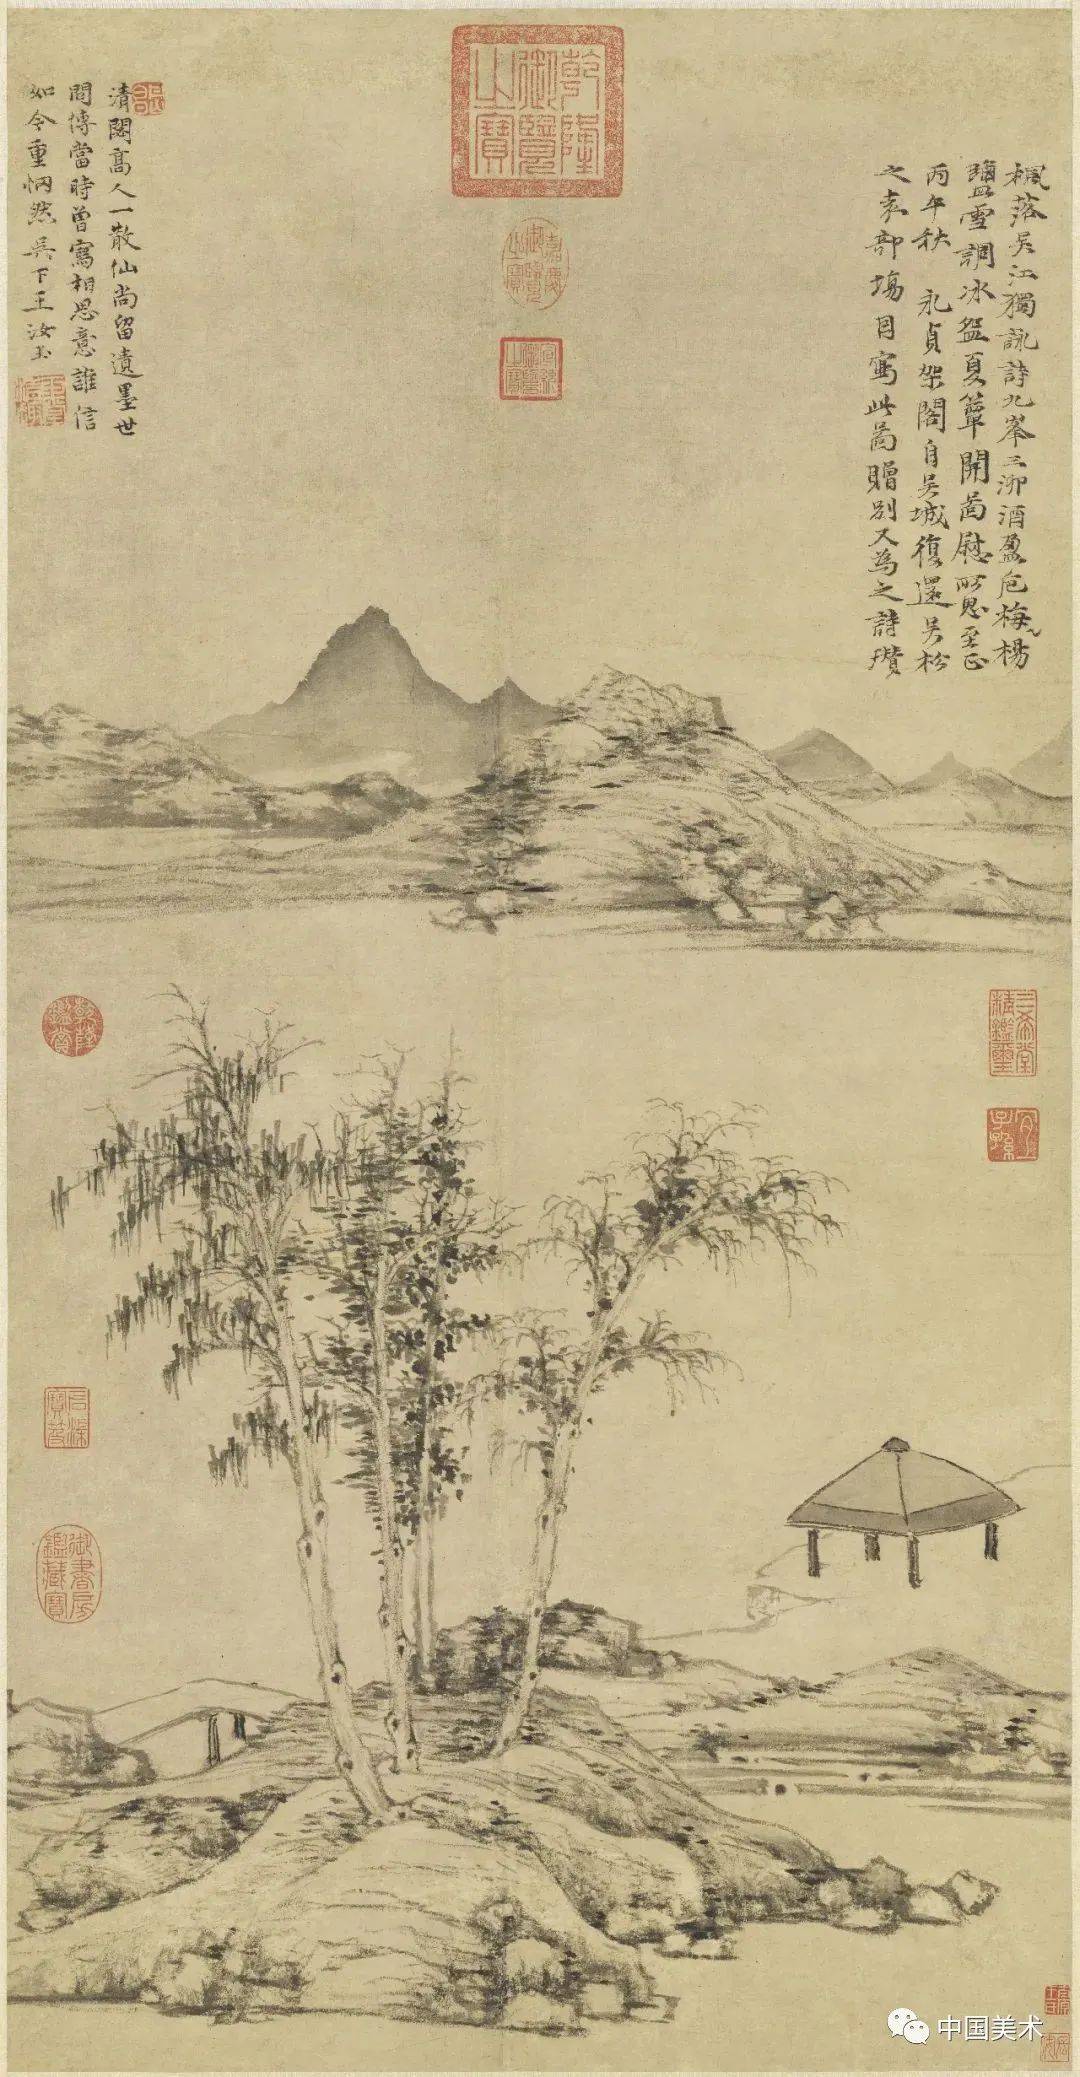 楓落吳江獨詠詩九峯三泖酒盈巵梅楊
鹽雪調冰盌夏簟開圖慰所思至正
丙午秋 永貞架閣自吳城復還吳松
之表部場因寫此圖贈別又為之詩瓚
清閟高人一散仙尚留遺墨世
間傳當時曾寫相思意誰信
如今重惘然吳下王汝玉
乾隆御覽之寶
嘉慶御覽之寶
宣統御覽之寶
乾隆鑑賞
三希堂精鑑璽
宜子孫
石渠寶笈
御書房鑑藏寶
中国美术